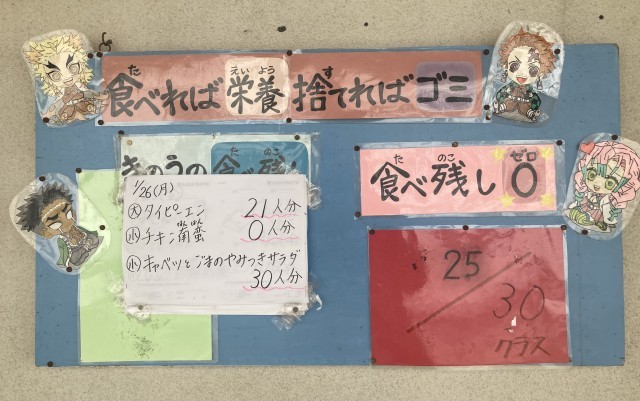 食べれば栄養 捨てればゴミ
た えい よう す
きのうの食べ残し
た のこ
食べ残し0
た のこ ゼロ
1/26(月)
大 タイピーエン 21人分
小 チキン南蛮 0人分
小 キャベツとごまのやみつきサラダ
30人分
25
30
クラス